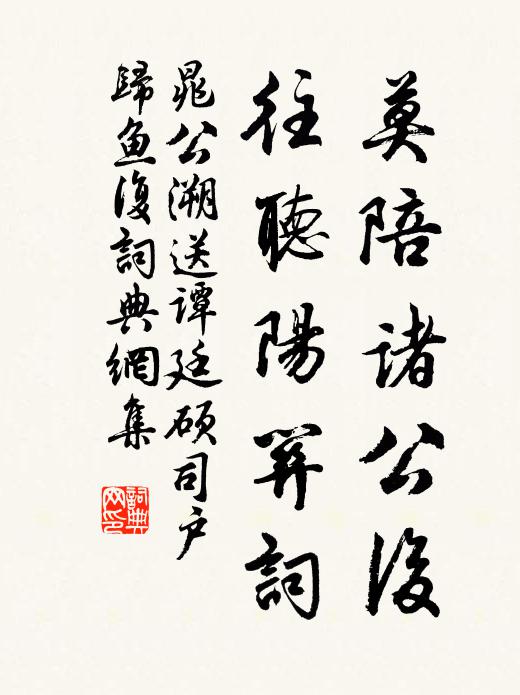 莫陪諸公後
往聽陽關詞
晁公溯送谭廷硕司户
歸魚復詞典網集
詞典网印